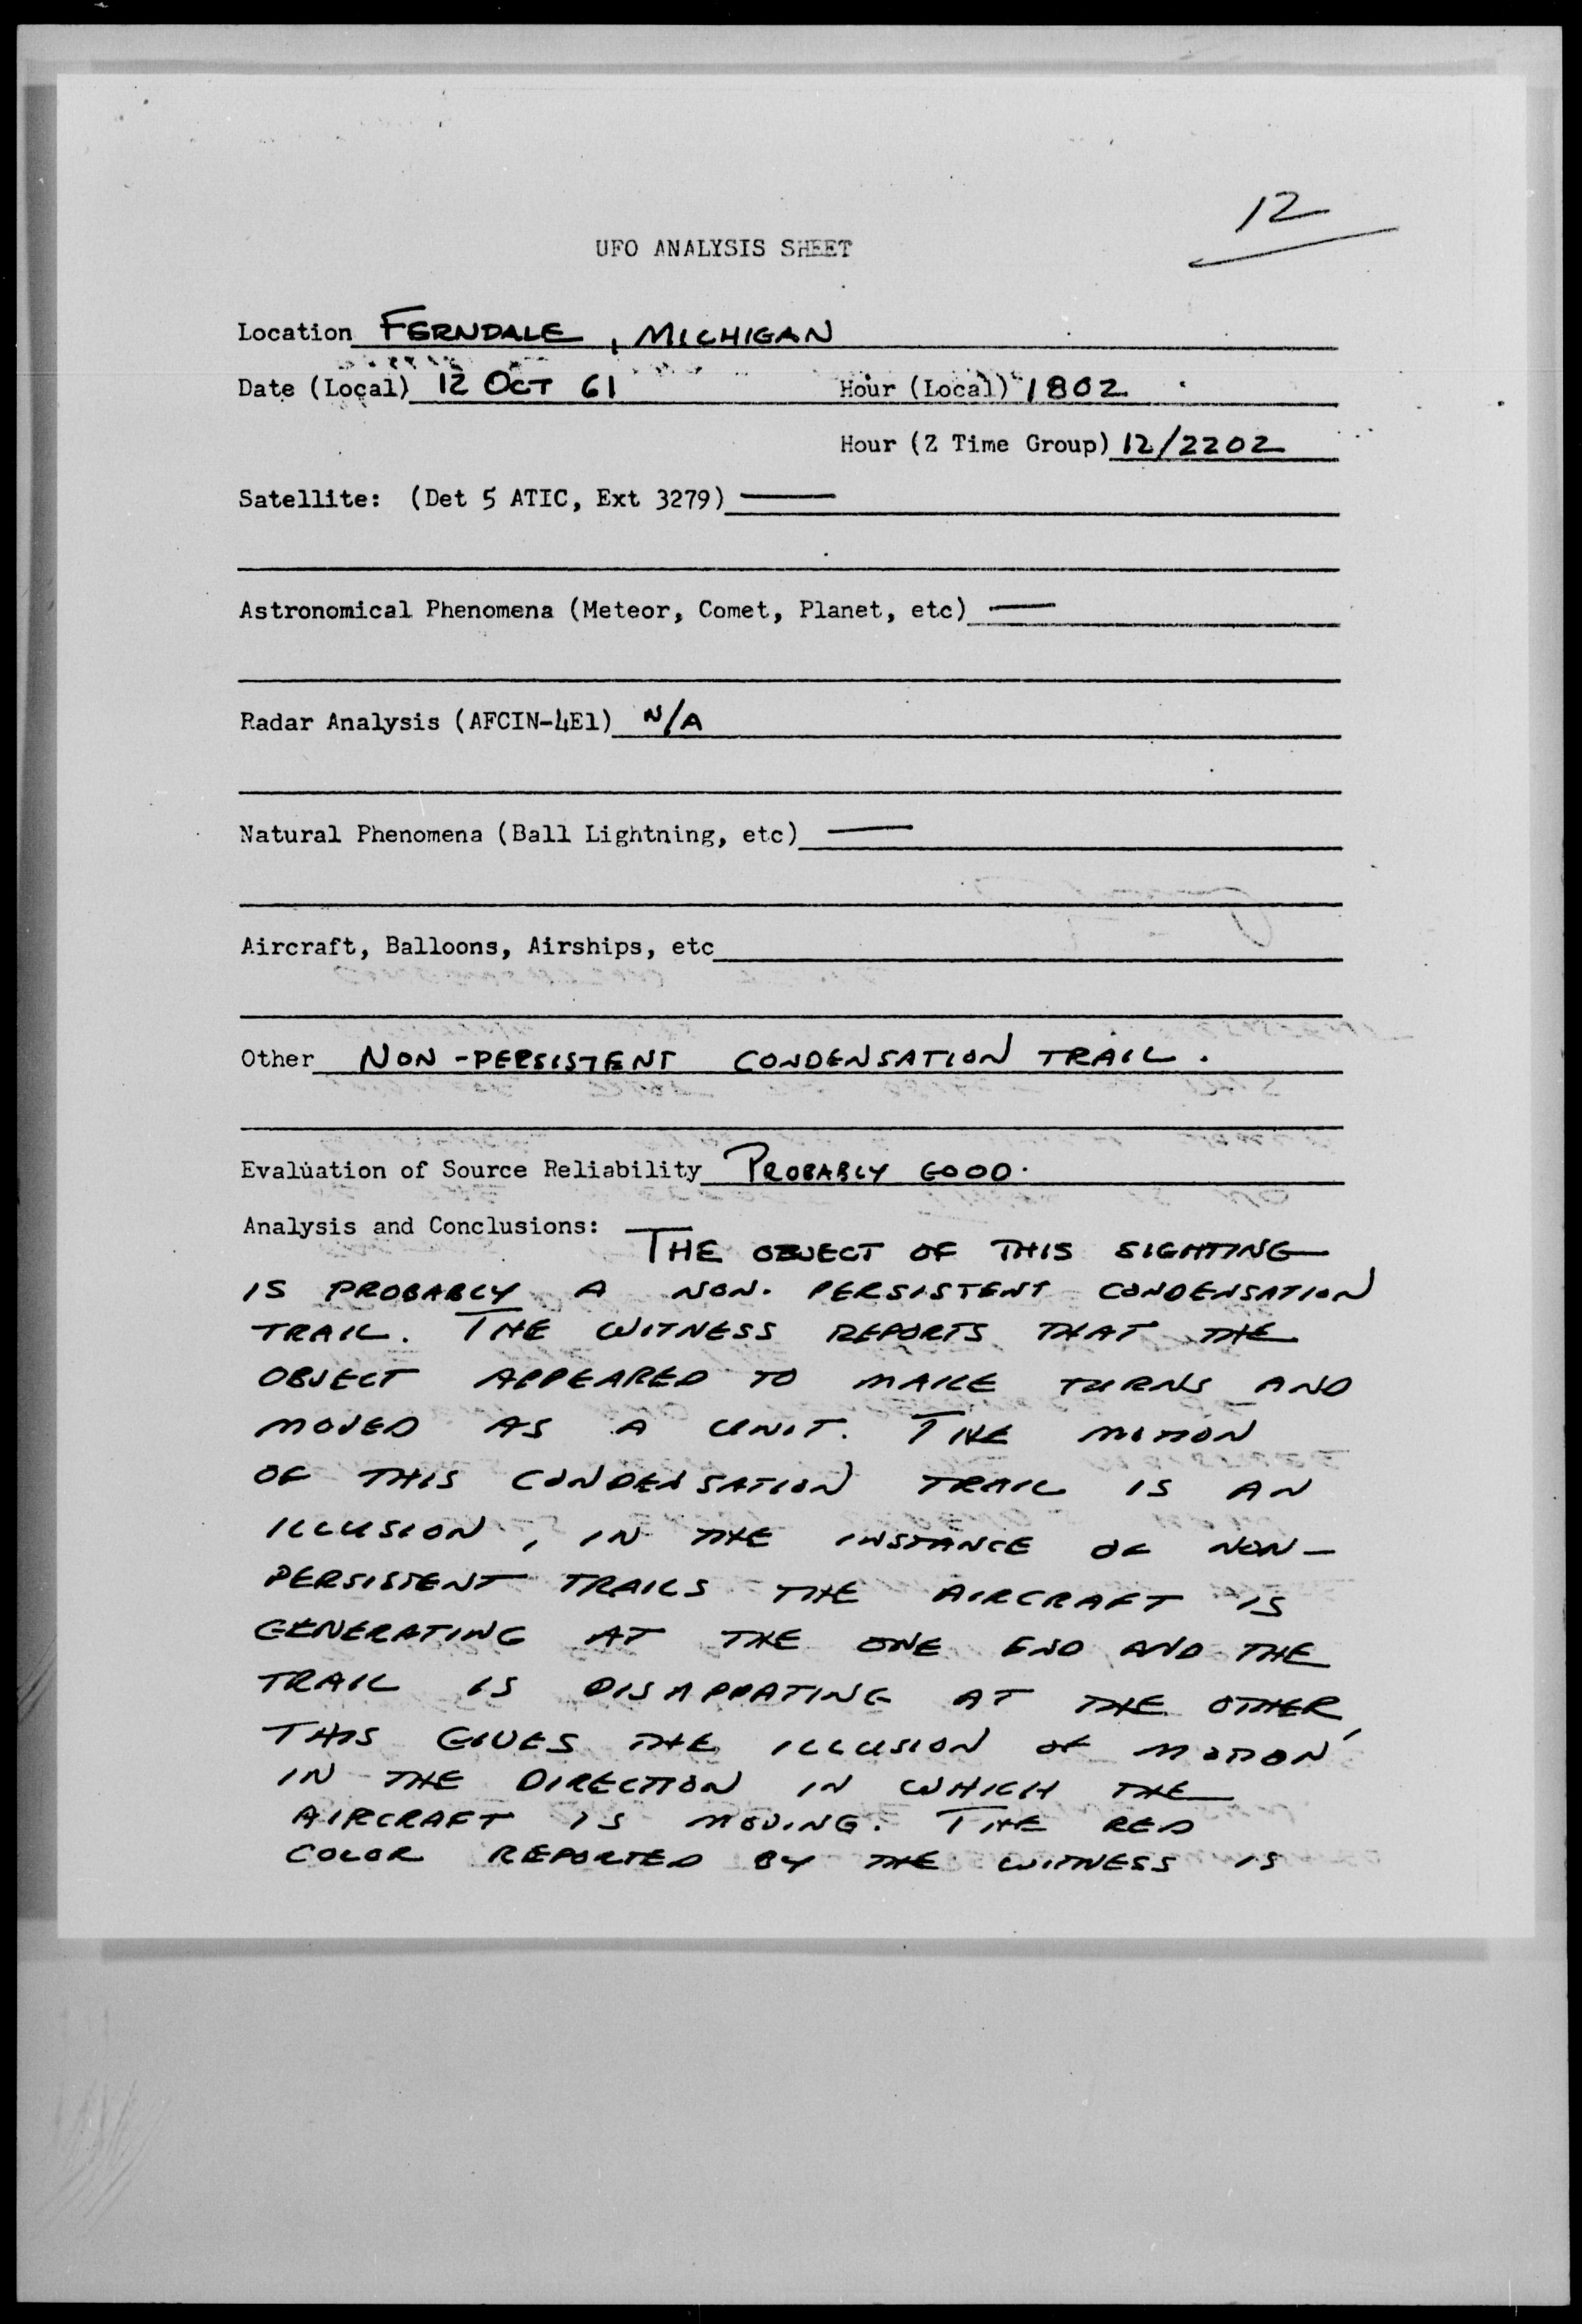 12
UFO ANALYSIS SHEET
Location FERNDALE, MICHIGAN
Date (Local) 12 OCT 61 Hour (Local) 1802
Hour (Z Time Group) 12/2202
Satellite: (Det 5 ATIC, Ext 3279) —
Astronomical Phenomena (Meteor, Comet, Planet, etc) —
Radar Analysis (AFCIN-4E1) N/A
Natural Phenomena (Ball Lightning, etc) —
Aircraft, Balloons, Airships, etc
Other NON-PERSISTENT CONDENSATION TRAIL.
Evaluation of Source Reliability PROBABLY GOOD.
Analysis and Conclusions: THE OBJECT OF THIS SIGHTING
IS PROBABLY A NON. PERSISTENT CONDENSATION
TRAIL. THE WITNESS REPORTS THAT THE
OBJECT APPEARED TO MAKE TURNS AND
MOVED AS A UNIT. THE MOTION
OF THIS CONDENSATION TRAIL IS AN
ILLUSION, IN THE INSTANCE OF NON-
PERSISTENT TRAILS THE AIRCRAFT IS
GENERATING AT THE ONE END AND THE
TRAIL IS DISAPPATING AT THE OTHER,
THIS GIVES THE ILLUSION OF MOTION
IN THE DIRECTION IN WHICH THE
AIRCRAFT IS MOVING. THE RED
COLOR REPORTED BY THE WITNESS IS